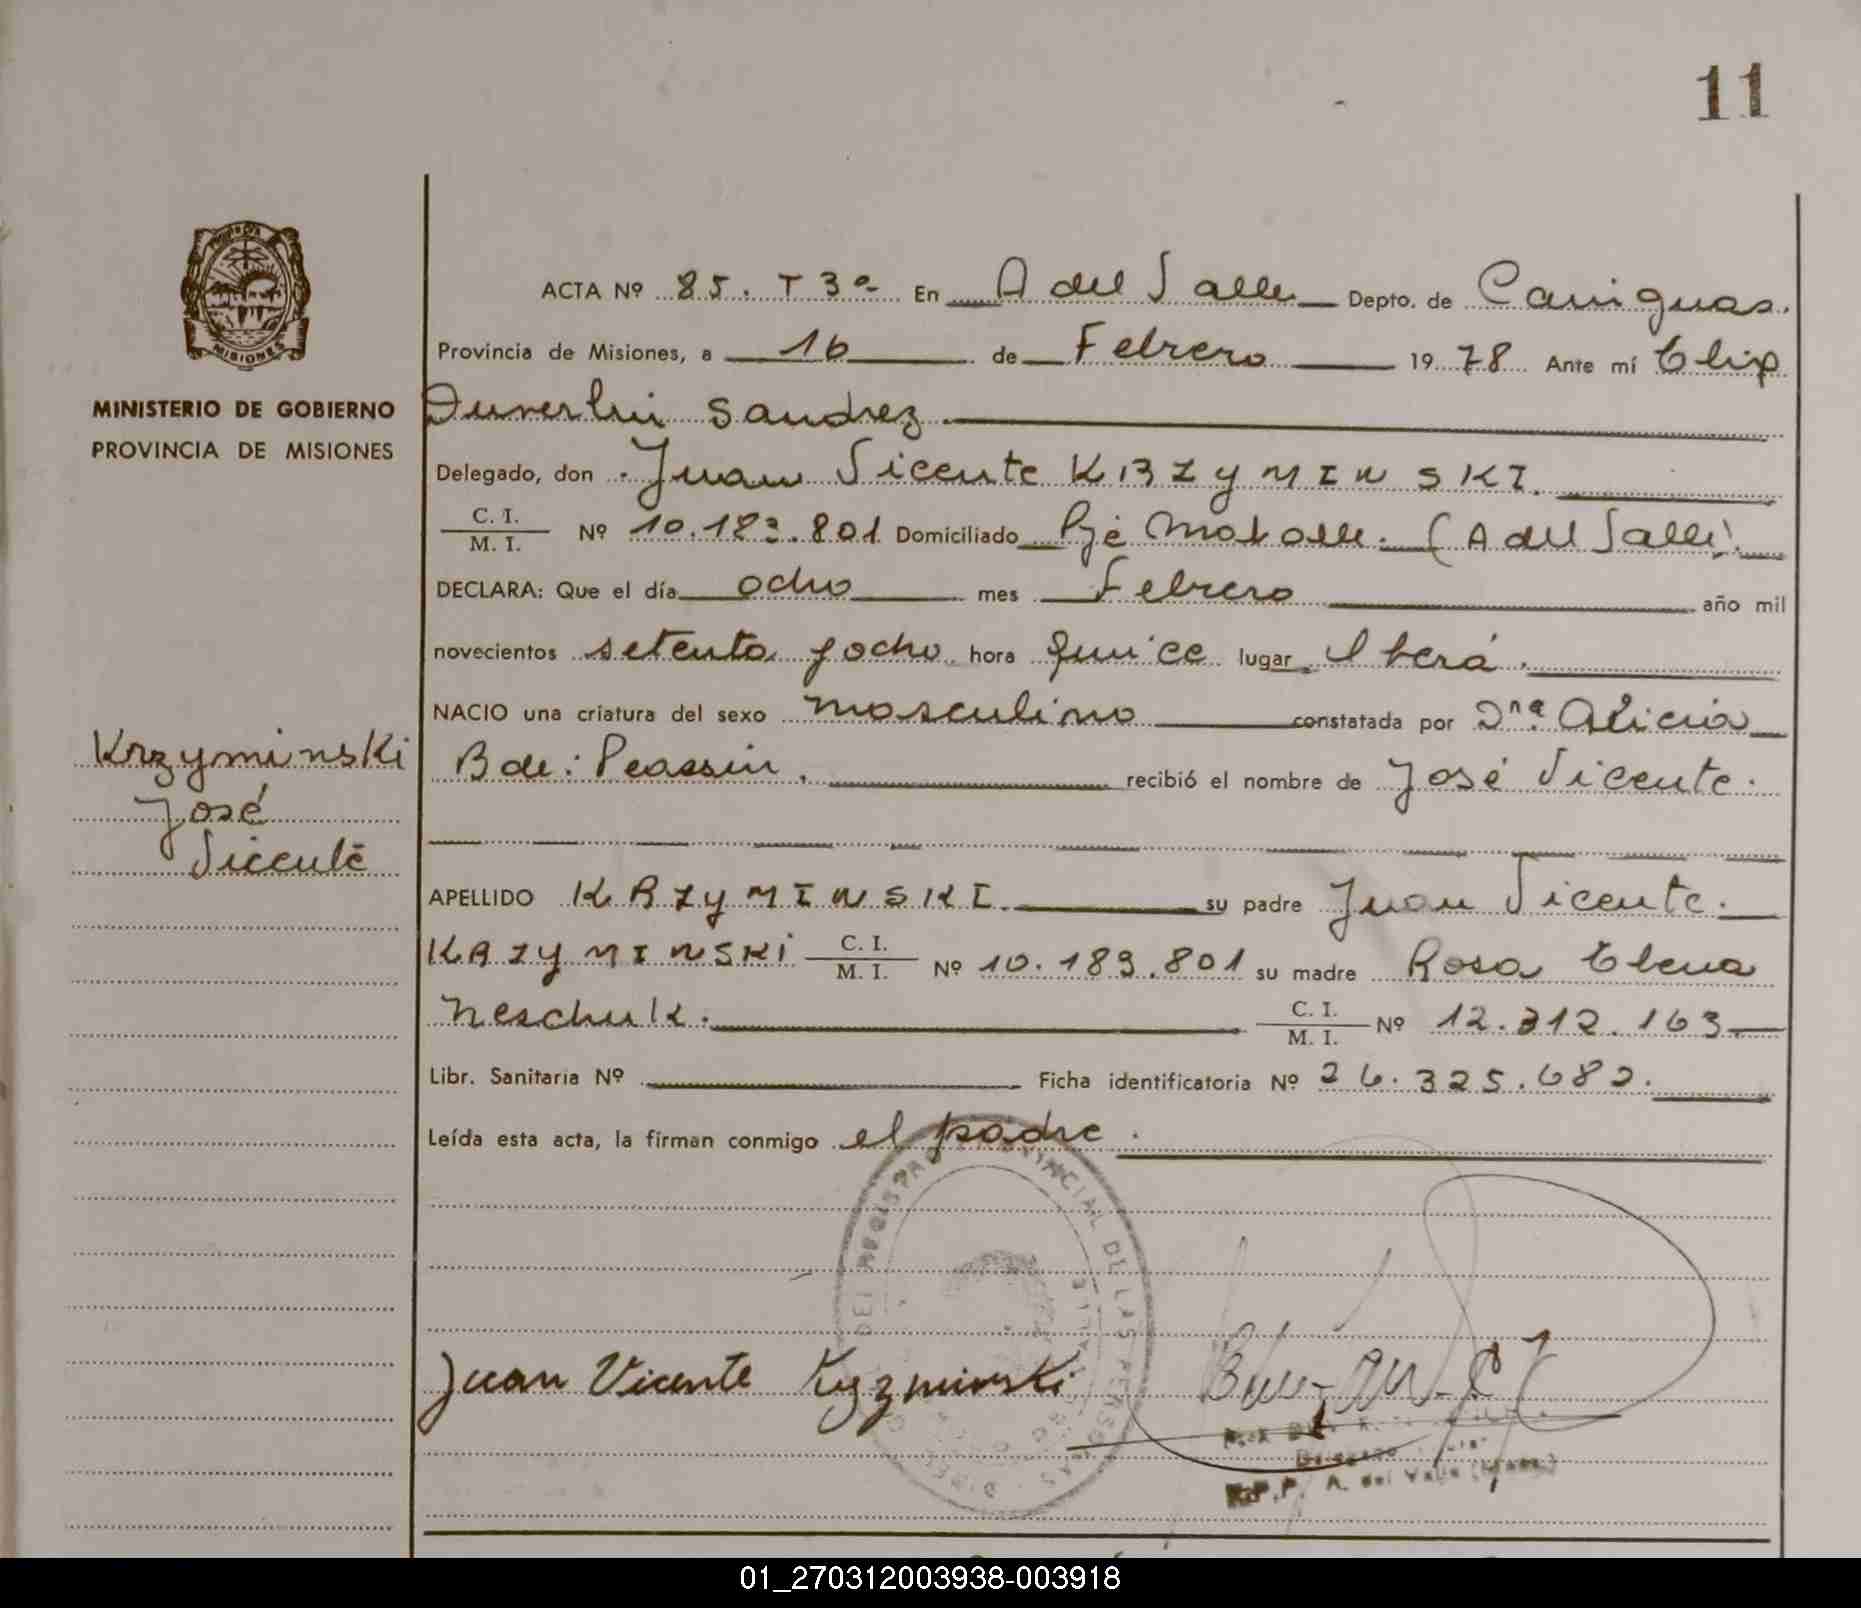 11
MISIONES
MINISTERIO DE GOBIERNO
PROVINCIA DE MISIONES
ACTA Nº 85. T 3º En A del Valle Depto. de Cainguas.
Provincia de Misiones, a 16 de Febrero 1978 Ante mí Elix
Duverlin Sandrez
Delegado, don Juan Vicente KRZYMINSKI.
C. I.
M. I. Nº 10.183.801 Domiciliado Pje (A del Valle).
DECLARA: Que el día ocho mes Febrero año mil
novecientos setenta y ocho hora quice lugar Iberá.
NACIO una criatura del sexo masculino constatada por Dña Alicia
B de: Peassin. recibió el nombre de José Vicente.
Krzyminski
José
Vicente
APELLIDO KRZYMINSKI. su padre Juan Vicente.
KRZYMINSKI C. I.
M. I. Nº 10.183.801 su madre Rosa Elena
Neschuk. C. I.
M. I. Nº 12.312.163
Libr. Sanitaria Nº Ficha identificatoria Nº 26.325.682.
Leída esta acta, la firman conmigo el padre.
PROVINCIAL DE LAS PERSONAS
Juan Vicente Kryzminski
Delegado
R.P.P. A. del Valle (Mnes.)
01_270312003938-003918